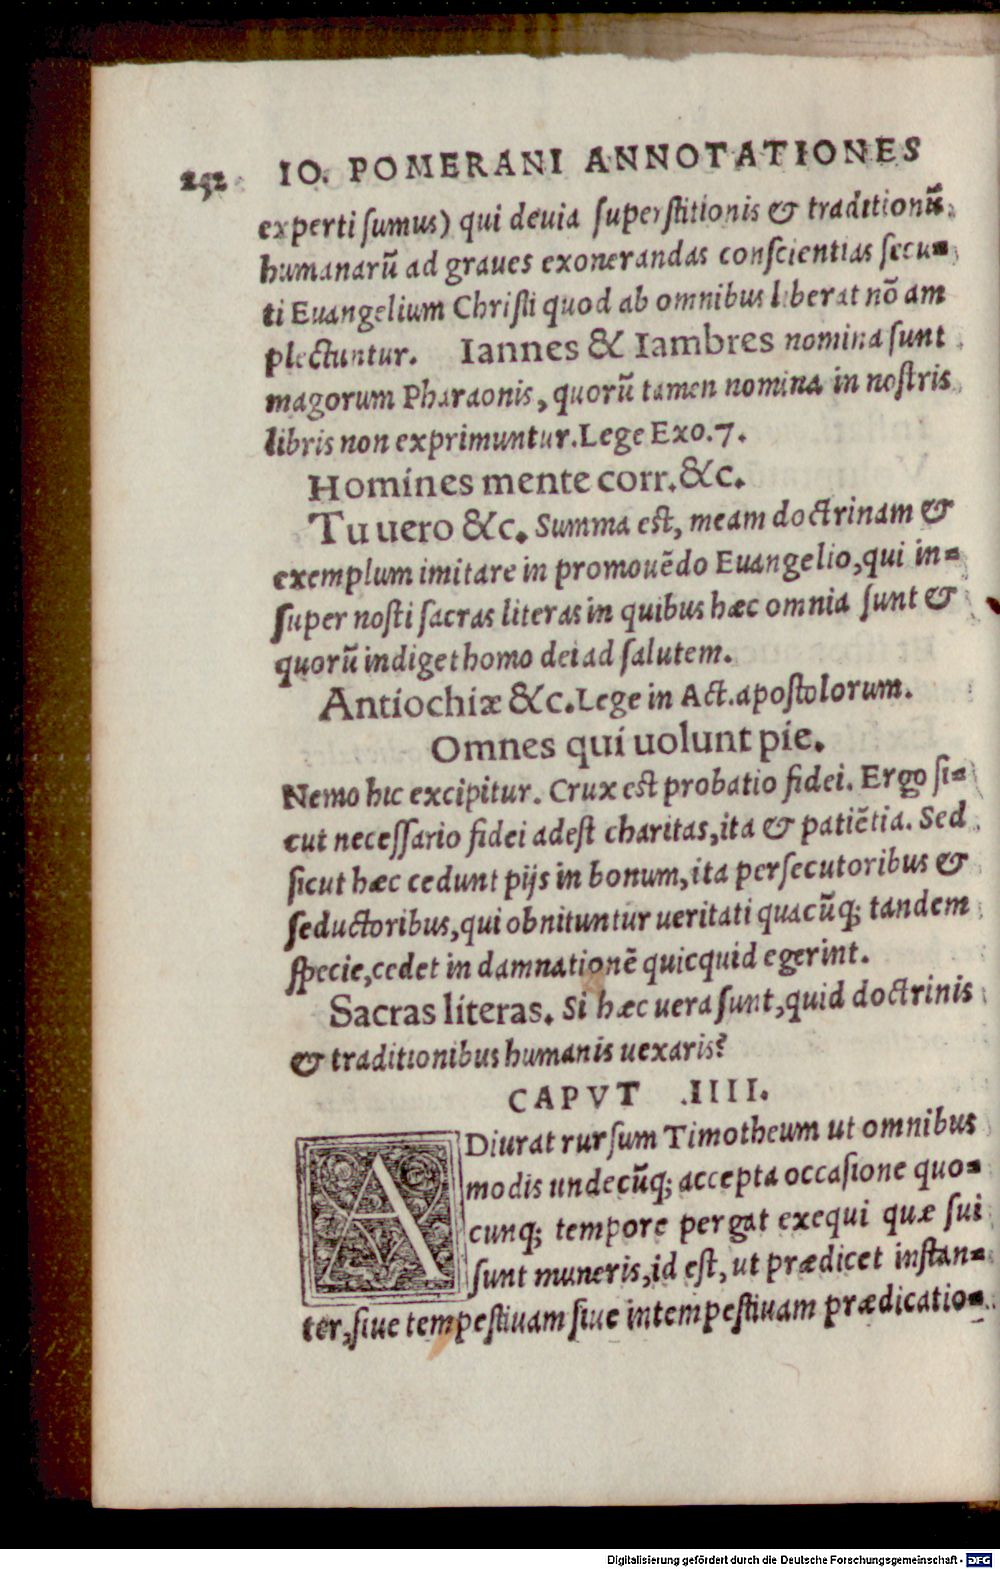 252 IO. POMERANI ANNOTATIONES
experti sumus) qui deuia superstitionis & traditionũ
humanarũ ad graues exonerandas conscientias secu-
ti Euangelium Christi quod ab omnibus liberat nõ am
plectuntur. Iannes & Iambres nomina sunt
magorum Pharaonis, quorũ tamen nomina in nostris
libris non exprimuntur. Lege Exo.7.
Homines mente corr.&c.
Tu uero &c. Summa est, meam doctrinam &
exemplum imitare in promouẽdo Euangelio, qui in-
super nosti sacras literas in quibus hæc omnia sunt &
quorũ indiget homo dei ad salutem.
Antiochiæ &c. Lege in Act. apostolorum.
Omnes qui uolunt pie.
Nemo hic excipitur. Crux est probatio fidei. Ergo si-
cut necessario fidei adest charitas, ita & patiẽtia. Sed
sicut hæc cedunt pijs in bonum, ita persecutoribus &
seductoribus, qui obnituntur ueritati quacũq; tandem
specie, cedet in damnationẽ quicquid egerint.
Sacras literas. Si hæc uera sunt, quid doctrinis
& traditionibus humanis uexaris?
CAPVT .IIII.
ADiurat rursum Timotheum ut omnibus
modis undecũq; accepta occasione quo-
cunq; tempore pergat exequi quæ sui
sunt muneris, id est, ut prædicet instan-
ter, siue tempestiuam siue intempestiuam prædicatio-
Digitalisierung gefördert durch die Deutsche Forschungsgemeinschaft - DFG